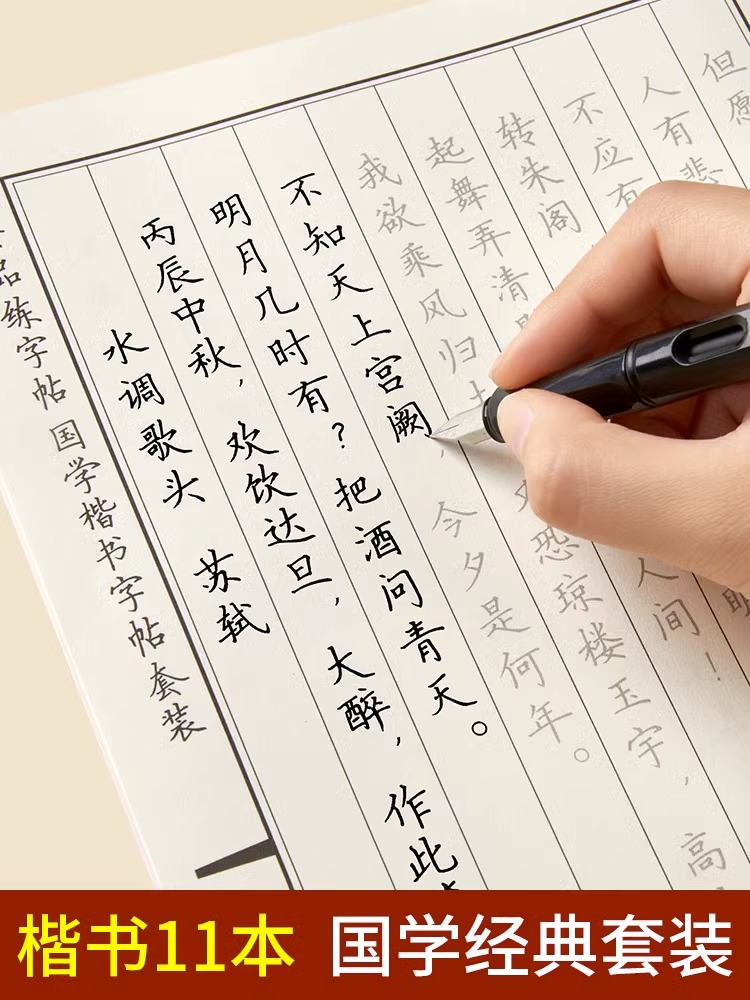 品练字帖国学楷书字帖套装
水调歌头 苏轼
丙辰中秋，欢饮达旦，大醉，作此
明月几时有？把酒问青天。
不知天上宫阙，今夕是何年。
我欲乘风归 恐琼楼玉宇，高
起舞弄清 人间！
转朱阁
不应有
人有悲
但愿
楷书11本 国学经典套装